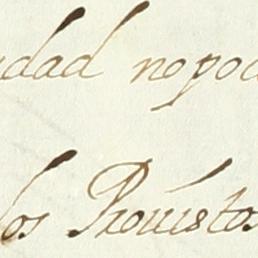 dad nopod
los Prouistos